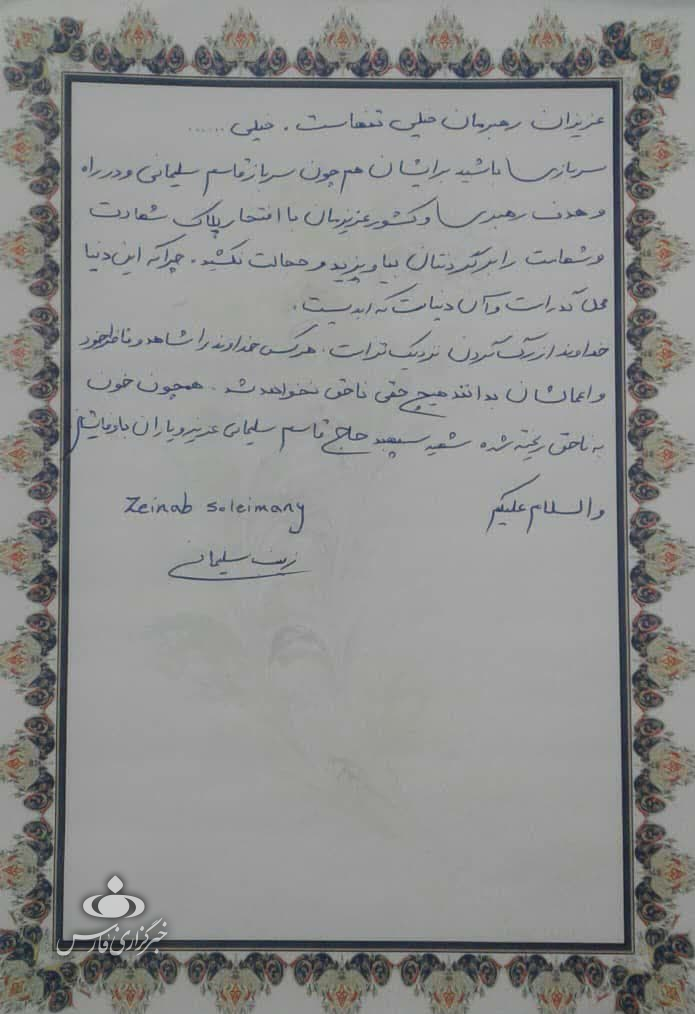 عزیزان رهبرمان خیلی تنهاست . خیلی ......
سربازی باشید برایشان هم چون سرباز قاسم سلیمانی و در راه
و هدف رهبری و کشور عزیزمان با افتخار پلاک شهادت
و شهامت را بر گردنتان بیاویزید و خجالت نکشید . چرا که این دنیا
محل گذر است و آن دنیاست که ابدیست .
خداوند از رگ گردن نزدیک تر است . هر کس خداوند را شاهد و ناظر خود
و اعمالشان بدانند هیچ حقی ناحق نخواهد شد . همچون خون
به ناحق ریخته شده شهید سپهبد حاج قاسم سلیمانی عزیز و یاران باوفایشان
والسلام علیکم
Zeinab soleimany
زینب سلیمانی
خبرگزاری فارس